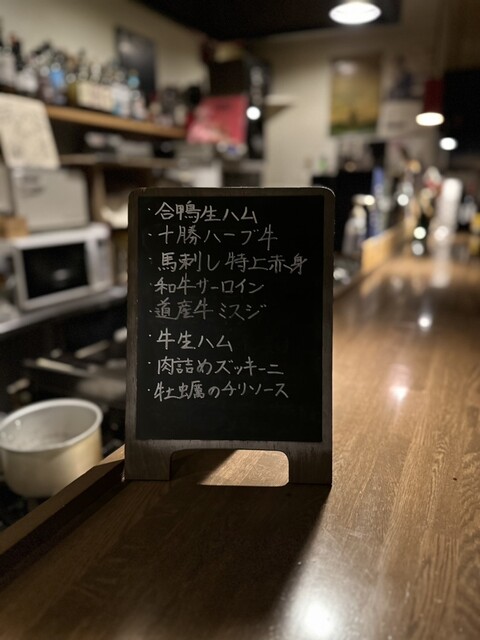 ・合鴨生ハム
・十勝ハーブ牛
・馬刺し特上赤身
・和牛サーロイン
・道産牛ミスジ
・牛生ハム
・肉詰めズッキーニ
・牡蠣のチリソース